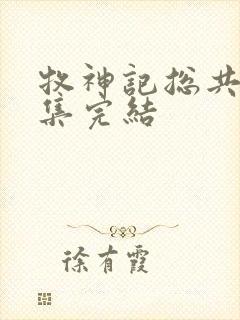 牧神記總共
集完結
徐有霞